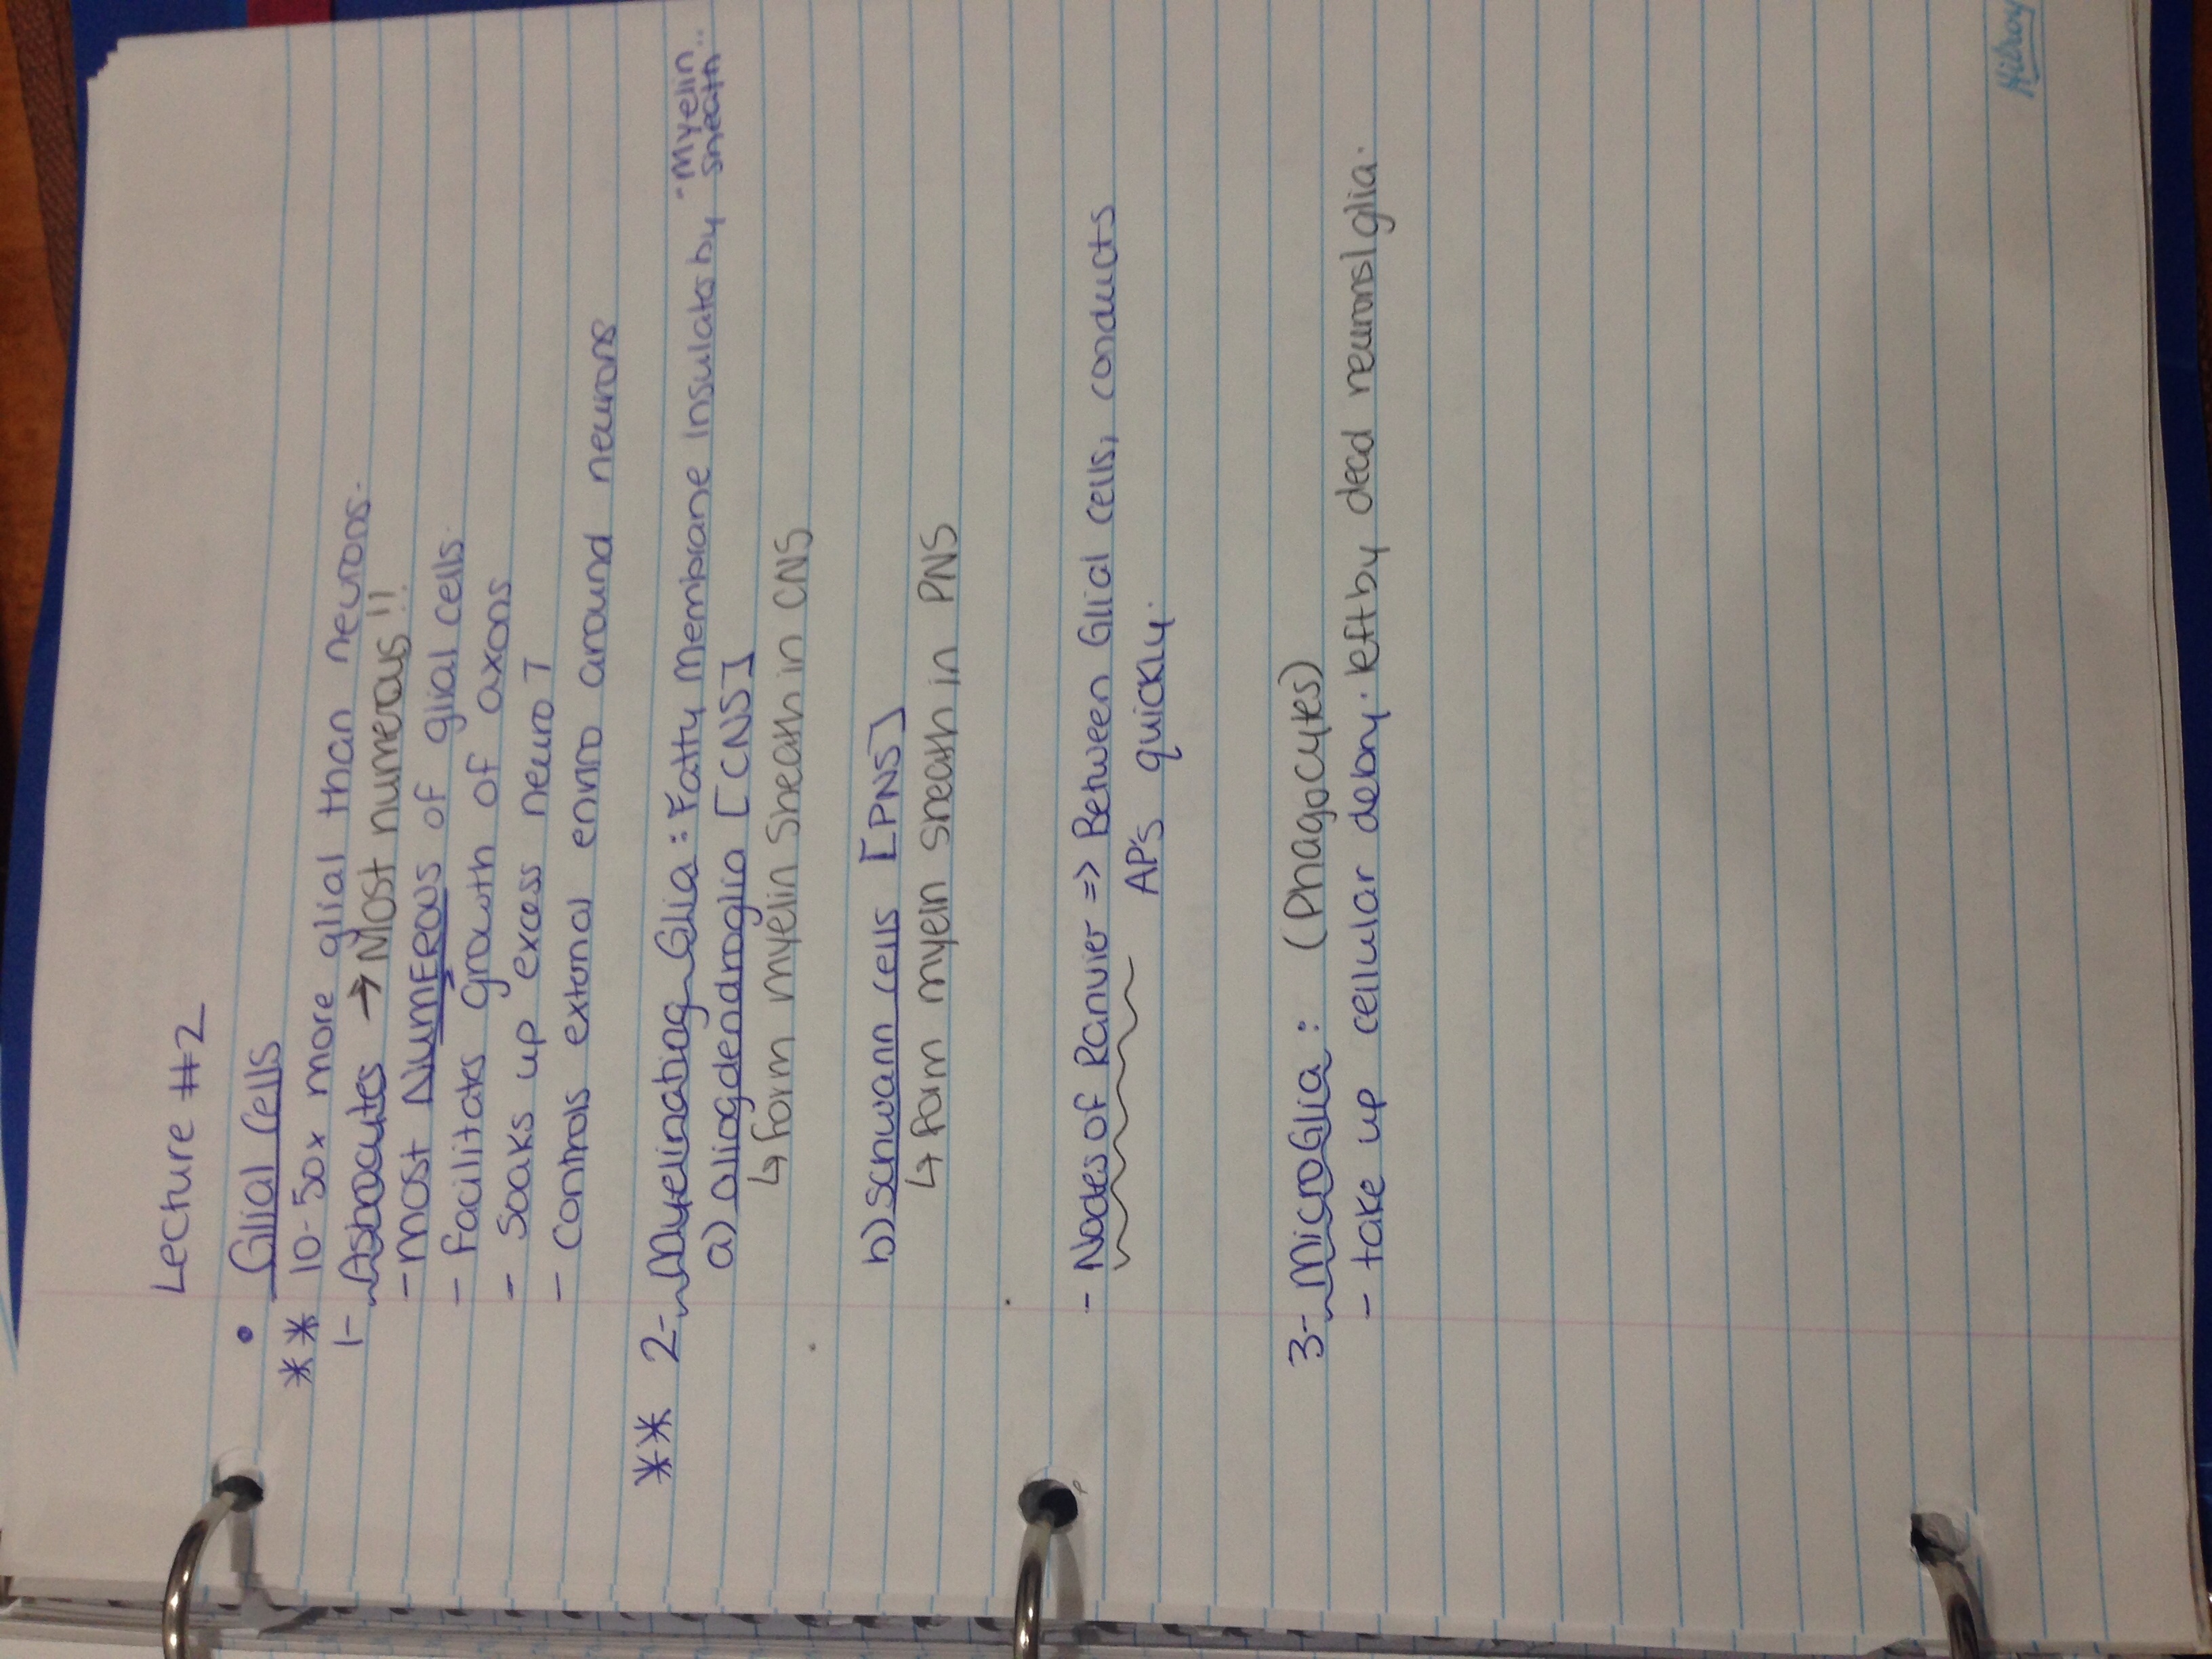 Lecture #2
• Glial Cells
** 10-50x more glial than neurons.
1- Astrocytes → Most numerous!!
- most NUMEROUS of glial cells.
- facilitates growth of axons
- soaks up excess neuro T
- controls external enviro around neurons
** 2- Myelinating Glia: Fatty Membrane insulates by "Myelin sheath"
a) oliogdendroglia [CNS]
↳ form myelin sheath in CNS
b) schwann cells [PNS]
↳ form myein sheath in PNS
- Nodes of Ranvier => Between Glial cells, conducts
AP's quickly.
3- MicroGlia: (Phagocytes)
- take up cellular debry. left by dead neurons/glia.
Hilroy